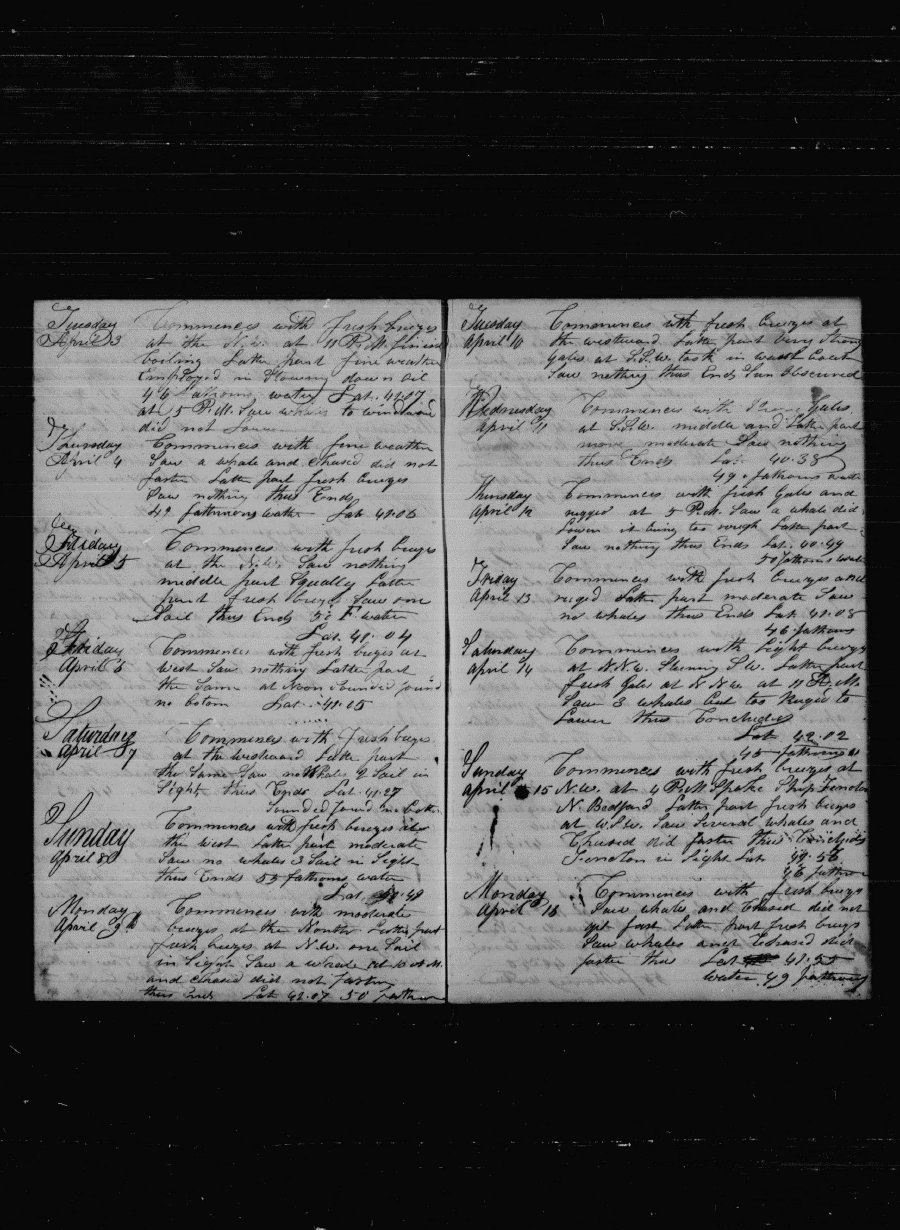 Tuesday
April 3
Commences with fresh breezes
at the N.W. at 11 P.M. finished
boiling Latter part fine weather
Employed in Stowing down Oil
46 Fathoms water Lat. 41.07
at 5 P.M. Saw whales to windward
did not Lower
Thursday
April 4
Commences with fine weather
Saw a whale and Chased did not
fasten Latter part fresh breezes
Saw nothing thus Ends
49 fathoms water Lat 41.06
Friday
April 5
Commences with fresh breezes
at the N.W. Saw nothing
middle part Equally Latter
part fresh breezes Saw one
Sail thus Ends 52 F water
Lat. 41.04
Friday
April 6
Commences with fresh breezes at
West Saw nothing Latter part
the Same at Noon Sounded found
no botom Lat. 41.05
Saturday
April 7
Commences with fresh breezes
at the westward Latter part
the Same Saw no Whales 2 Sail in
Sight thus Ends Lat. 41.27
Sounded found no
Sunday
April 8
Commences with fresh breezes at
the west Latter part moderate
Saw no whales 3 Sail in Sight
thus Ends 55 fathoms water
Lat. 49
Monday
April 9th
Commences with moderate
breezes at the North Latter part
fresh breezes at N.W. one Sail
in Sight Saw a whale at 10 A.M.
and chased did not fasten
thus Ends Lat 42.07 50 fathoms
Tuesday
April 10
Commences with fresh breezes at
the westward Latter part very Strong
Gales at S.S.W. took in
Saw nothing thus Ends Sun Obscured
Wednesday
April 11
Commences with Strong Gales
at S.S.W. middle and Latter part
more moderate Saw nothing
thus Ends Lat 40.38
49 fathoms water
Thursday
April 12
Commences with fresh Gales and
rugged at 5 P.M. Saw a whale did
Lower it being too rough Latter part
Saw nothing thus Ends Lat. 40.49
50 fathoms water
Friday
April 13
Commences with fresh breezes and
ruged Latter part moderate Saw
no whales thus Ends Lat 41.08
46 fathoms
Saturday
April 14
Commences with Light breezes
at N.N.W. Steering S.W. Latter part
fresh Gales at N N W at 11 A.M.
Saw 3 whales but too Ruged to
Lower thus Concludes
Lat 42.02
45 fathoms
Sunday
April 15
Commences with fresh breezes at
N.W. at 4 P.M. Spoke Ship Fenelon
N. Bedford Latter part fresh breezes
at W.S.W. Saw Several whales and
Chased did fasten thus Concludes
Fenelon in Sight Lat 41.56
46 fathoms
Monday
April 16
Commences with fresh breezes
Saw whales and Chased did not
get fast Latter part fresh breezes
Saw whales and Chased did
fasten thus Lat 41.55
Water 49 fathoms